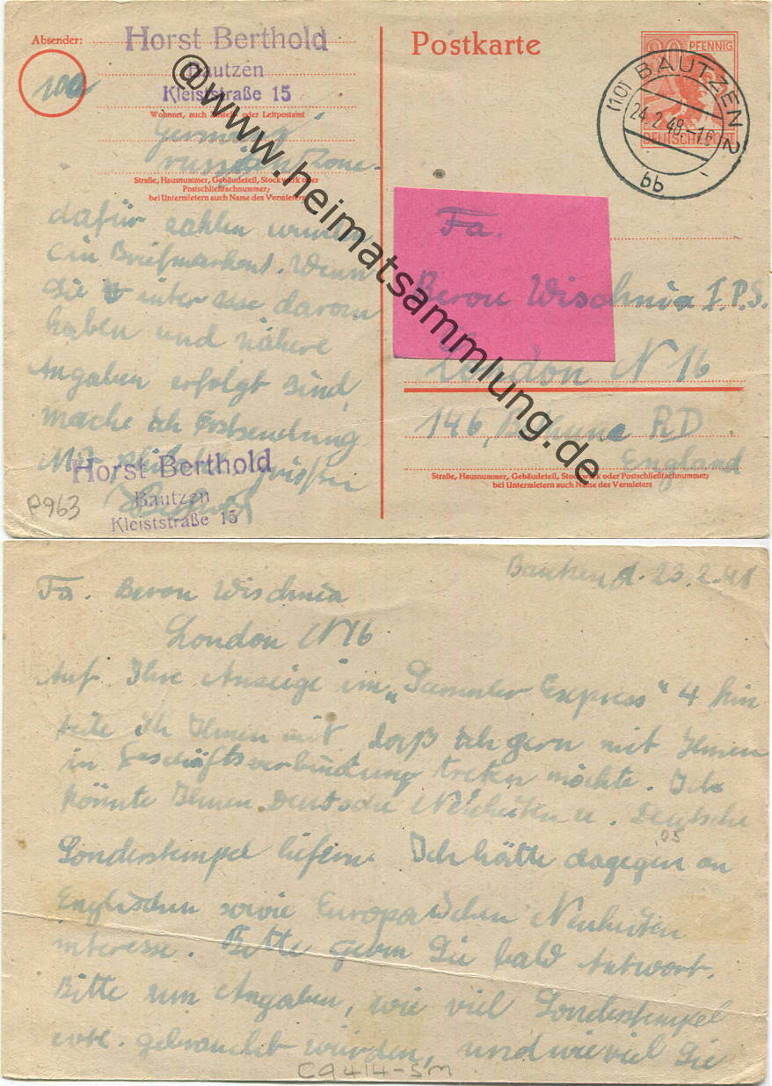 Absender:
Horst Berthold
Bautzen
Kleiststraße 15
10a
Wohnort, auch Zustell- oder Leitpostamt
Germany
russian Zone.
Straße, Hausnummer, Gebäudeteil, Stockwerk oder
Postschließfachnummer;
bei Untermietern auch Name des Vermieters
dafür zahlen würden
in Briefmarken. Wenn
Sie interesse daran
haben und nähere
Angaben erfolgt sind,
mache ich Erstsendung
Mit
Horst Berthold
Bautzen
Kleiststraße 15
P963
Postkarte
PFENNIG
(10) BAUTZEN 2
24.2.48.-16
bb
Fa.
Beron Wischnia I.P.S.
London N 16
146, RD
England
Straße, Hausnummer, Gebäudeteil, Stockwerk oder Postschließfachnummer;
bei Untermietern auch Name des Vermieters
@www.heimatsammlung.de
Bautzen d. 23.2.48
Fa. Beron Wischnia
London N16
Auf Ihre Anzeige im „Sammler Express" 4 hin
teile ich Ihnen mit, daß ich gern mit Ihnen
in Geschäftsverbindung treten möchte. Ich
könnte Ihnen Deutsche Neuheiten u. Deutsche
Sonderstempel liefern. Ich hätte dagegen an
Englischen sowie Europäischen Neuheiten
interesse. Bitte geben Sie bald Antwort.
Bitte um Angaben, wie viel Sonderstempel
evtl. gebraucht würden, und wieviel Sie
C9414-5m